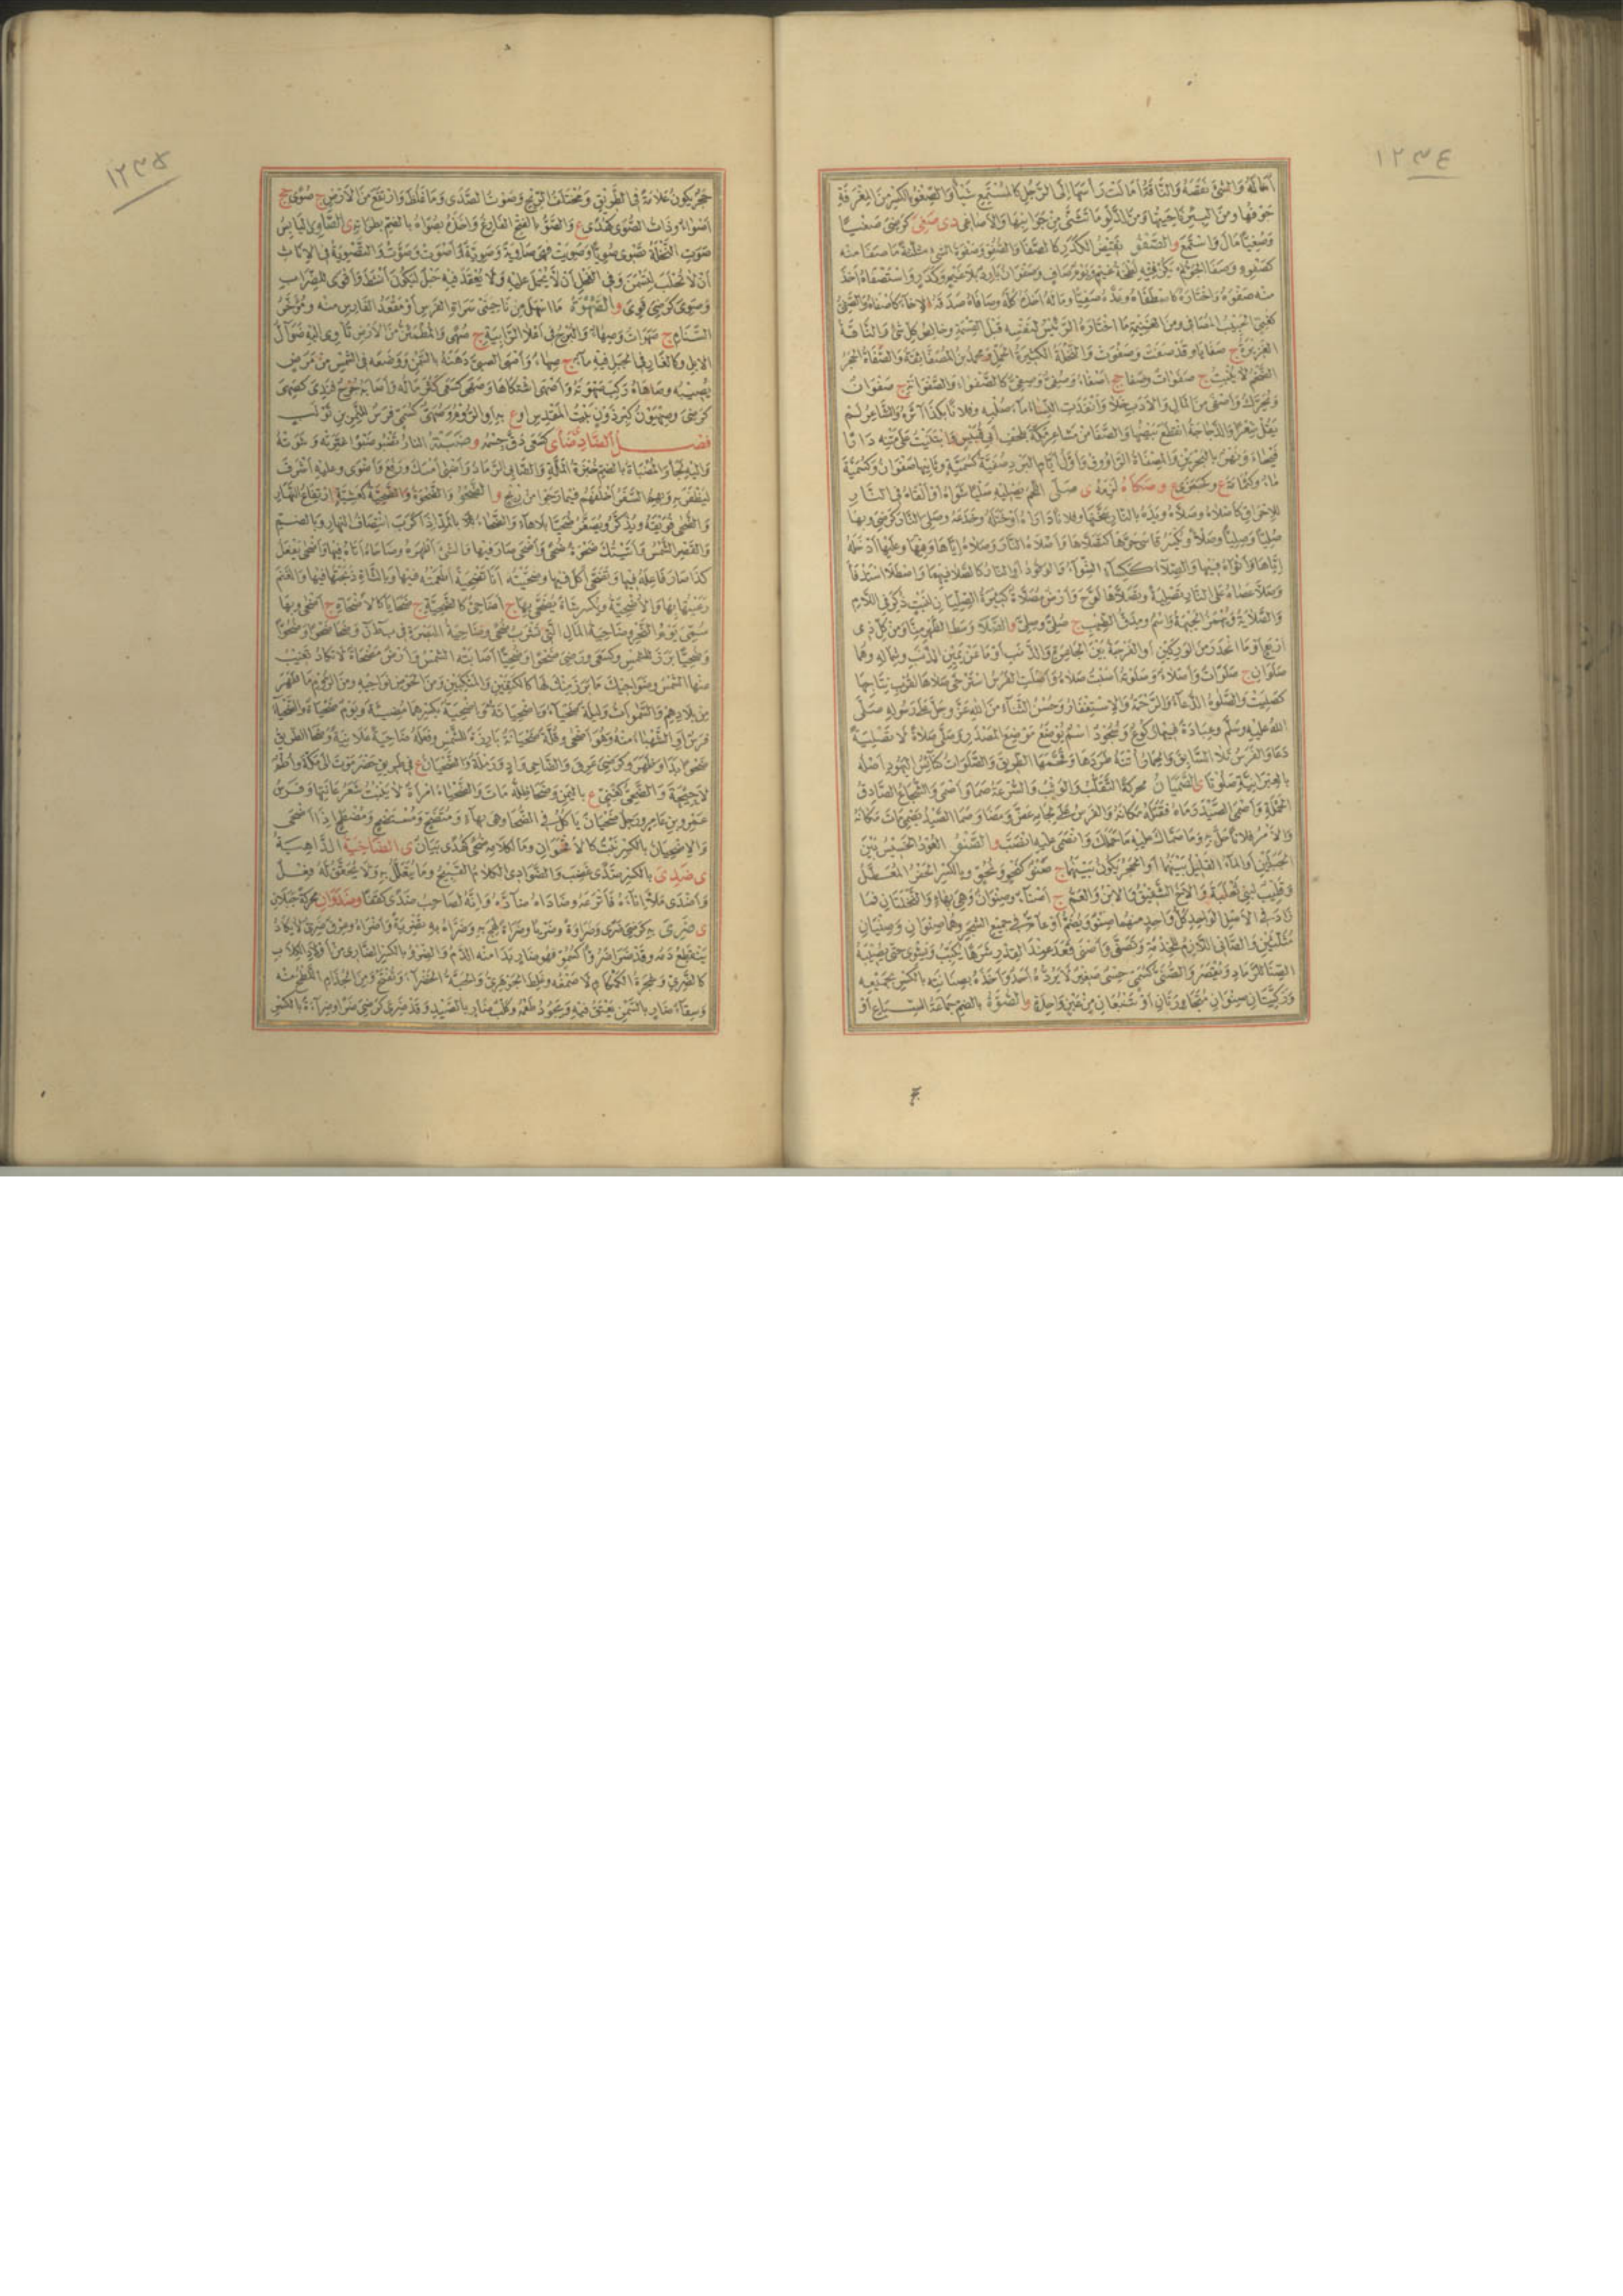 ١٢٣٤
أماله والشئ نقصه والناقة أمالت رأسها إلى الرجل كالمستمع شيأ والصغو بالكسر من المغرفة
جوفها ومن البئر ناحيتها ومن الدلو ما تثنى من جوانبها والأصاغى د ى صغى كرضى صغيا
وصغيا مال واستمع و الصفو نقيض الكدر كالصفا والصفو وصفوة الشئ مثلثة ما صفا منه
كصفوه وصفا الجو لم يكن فيه لطخة غيم ويوم صاف وصفوان بارد بلا غيم وكدر واستصفاه أخذ
منه صفوه واختاره كاصطفاه وعده صفيا وماله أخذ كله وصافاه صدقه الإخاء كأصفاه والصفى
كغنى الحبيب المصافى ومن الغنيمة ما اختاره الرئيس لنفسه قبل القسمة وخالص كل شئ والناقة
الغزيرة ج صفايا وقد صفت وصفوت والنخلة الكثيرة الحمل ومحمد بن المصفى ثقة والصفاة الحجر
الضخم لا ينبت ج صفوات وصفا جج أصفاء وصفى وصفى كالصفواء والصفوان ج صفوان
ويحرك وأصفى من المال والأدب خلا وأنفدت النساء ماء صلبه وفلانا بكذا آثره والشاعر لم
يقل شعرا والدجاجة انقطع بيضها والصفا من مشاعر مكة بلحف أبى قبيس وابتنيت على متنه دارا
فيحاء ونهر بالبحرين والمصفاة الراووق وأول أيام البرد صفية كسمية وثانيها صفوان وكسمية
ماء وكقناة ع وكجمزى ع و صكاه لزمه ى صلى اللحم يصليه صليا شواه أو ألقاه فى النار
للإحراق كأصلاه وصلاه ويده بالنار سخنها وفلانا داراه أو خاتله وخدعه وصلى النار كرضى وبها
صليا وصليا وصلاء ويكسر قاسى حرها كتصلاها وأصلاه النار وصلاه إياها وفيها وعليها أدخله
إياها وأثواه فيها والصلاء ككساء الشواء والوقود أو النار كالصلا فيهما واصطلا استدفأ
وصلى عصاه على النار تصلية وتصلاها لوح وأرض مصلاة كثيرة الصليان لنبت ذكر فى اللام
والصلاية ويهمز الجبهة واسم ومدق الطيب ج صلى وصلى و الصلا وسط الظهر منا ومن كل ذى
أربع أو ما انحدر من الوركين أو الفرجة بين الجاعرة والذنب أو ما عن يمين الذنب وشماله وهما
صلوان ج صلوات وأصلاء وصلوته أصبت صلاه وأصلت الفرس استرخى صلاها لقرب نتاجها
كصليت والصلوة الدعاء والرحمة والاستغفار وحسن الثناء من الله عز وجل على رسوله صلى
الله عليه وسلم وعبادة فيها ركوع وسجود اسم يوضع موضع المصدر وصلى صلاة لا تصلية
دعا والفرس تلا السابق والحمار أتنه طردها وقحمها الطريق والصلوات كنائس اليهود أصله
بالعبرانية صلوتا ى الصميان محركة التقلب والوثب والسرعة صما وأصمى والشجاع الصادق
الحملة وأصمى الصيد رماه فقتله مكانه والفرس على لجامه عض ومضى وصما الصيد يصمى مات مكانه
والأمر فلانا حل به وما صماك عليه ما حملك وانصمى عليه انصب و الصنو العود الخسيس بين
الجبلين أو الماء القليل بينهما أو الحجر يكون بينهما ج صنو كنحو ونحو وبالكسر الحفر المعطل
وقليب لبنى ثعلبة و الأخ الشقيق والابن والعم ج أصناء وصنوان وهى بهاء والنخلتان فما
زاد فى الأصل الواحد كل واحد منهما صنو ويضم أو عام فى جميع الشجر وهما صنوان وصنيان
مثلثين والصانى اللازم للخدمة وتصنى وأصنى قعد عند القدر شرها يكبب ويشوى حتى يصيبه
الصناء للرماد ويقصر والصنى كسمى حسى صغير لا يرده أحد وأخذه بصنايته بالكسر بجميعه
وركيتان صنوان متجاورتان أو تنبعان من عين واحدة و الصوة بالضم جماعة السباع أو
١٢٣٥
حجر يكون علامة فى الطريق ومختلف الريح وصوت الصدى وما غلظ وارتفع من الأرض ج صوى جج
أصواء وذات الصوى كهدى ع والصو بالفتح الفارغ وأخذه بصواه بالضم بطراءته ى الصاوى اليابس
صوت النخلة تصوى صويا وصويت فهى صاوية وصوية وأصوت وصوت والتصوية فى الإناث
أن لا تحلب لتسمن وفى الفحل أن لا يحمل عليه ولا يعقد فيه حبل ليكون أنشط وأقوى للضراب
وصوى كرضى قوى و الصهوة ما اسهل من ناحيتى سراة الفرس أو مقعد الفارس منه ومؤخر
السنام ج صهوات وصهاء والبرج فى أعلا الرابية ج صهى والمطمئن من الأرض تأوى إليه ضوال
الإبل وكالغار فى الجبل فيه ماء ج صهاء وأصهى الصبى دهنه بالسمن ووضعه فى الشمس من مرض
يصيبه وصاهاه ركب صهوته وأصهى اشتكاها وصهى كسعى كثر ماله وأصابه جرح فندى كصهى
كرضى وصهيون كبرذون بيت المقدس أو ع به أو الروم وصهى كسمى فرس للنمر بن تولب
فصل الضاد ضأى كسعى دق جسمه و ضبته النار تضبو ضبوا غيرته وشوته
وإليه لجأ والمضباة بالضم خبزة الملة والضابى الرماد وأضبى أمسك ورفع وأضوى وعليه أشرف
ليظفر به وبهم السفر أخلفهم فيما رجوا من ربح و الضحو والضحوة والضحية كعشية ارتفاع النهار
والضحى فويقه ويذكر ويصغر ضحيا بلا هاء والضحاء بالمد إذا كرب انتصاف النهار وبالضم
والقصر الشمس وأتيتك ضحوة ضحى وأضحى صار فيها والشئ أظهره وضاحاه أتاه فيها وأضحى يفعل
كذا صار فاعله فيها وتضحى أكل فيها وضحيته أنا تضحية أطعمته فيها وبالشاة ذبحتها فيها والغنم
رعيتها بها والأضحية وتكسر شاة يضحى بها ج أضاحى كالضحية ج ضحايا كالأضحاة ج أضحى وبها
سمى يوم النحر وضاحية المال التى تشرب ضحى وضاحية البصرة ... وضحا ضحوا وضحوا
وضحيا برز للشمس وكسعى ورضى ضحوا وضحيا أصابته الشمس وأرض مضحاة لا تكاد تغيب
منها الشمس وضواحيك ما برز منك لها كالكتفين والمنكبين ومن الحوض نواحيه ومن الروم ما ظهر
من بلادهم والسموات وليلة ضحياء وإضحيانة وإضحية بكسرهما مضيئة ويوم ضحياة والضحياء
فرس أو الشهباء منه وهو أضحى وقلة ضحيانة بارزة للشمس وفعله ضاحية علانية وضحا الطريق
ضحوا بدا وظهر وكرضى عرق والضاحى واد ورملة والضحيان ع فى طريق حضرموت إلى مكة وأطم
لأحيحة والضحى كغنى ع باليمن وضحا ظله مات والضحياء امرأة لا ينبت شعر عانتها وفرس
عمرو بن عامر ورجل ضحيان يأكل فى الضحا وهى بهاء ومتضح ومستضح ومضطح إذا أضحى
والإضحيان بالكسر نبت كالأقحوان وما لكلامه ضحى كهدى بيان ى الضاخية الداهية
ى ضدى بالكسر ضدى غضب والضوادى الكلام القبيح وما يتعلل به ولا يحقق له فعل
وأضدى ملأ إناءه فأترعه وضاداه ضادّه وإنه لصاحب ضدى كقفا و ضدوان محركة جبلان
ى ضرى به كرضى ضرى وضراوة وضريا وضراة لهج به وضراه به تضرية وأضراه وعرق ضرى لا يكاد
ينقطع دمه وقد ضرا ضروا كسمو فهو ضار بدا منه الدم والضرو بالكسر الضارى من أولاد الكلاب
كالضرى وشجرة الكمكام لا صمغه وغلط الجوهرى والحبة الخضراء وتفتح ومن الجذام اللطخ منه
وسقاء ضار بالسمن يعتق فيه ويجود طعمه وكلب ضار بالصيد وقد ضرى كرضى ضرا وضراءة بالكسر